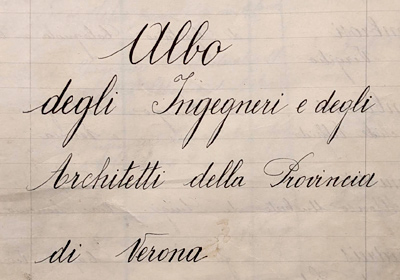 Albo
degli Ingegneri e degli
Architetti della Provincia
di Verona